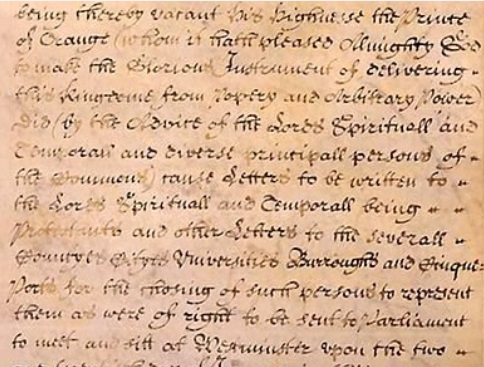 being thereby vacant His Highnesse the Prince
of Orange (whom it hath pleased Almighty God
to make the Glorious Instrument of delivering
this Kingdome from Popery and Arbitrary Power)
did (by the Advice of the Lords Spirituall and
Temporall and diverse principall persons of
the Commons) cause Letters to be written to
the Lords Spirituall and Temporall being
Protestants and other Letters to the severall
Countyes Cityes Universities Burroughs and Cinque
Ports for the chosing of such persons to represent
them as were of right to be sent to Parliament
to meet and sitt at Westminster upon the two